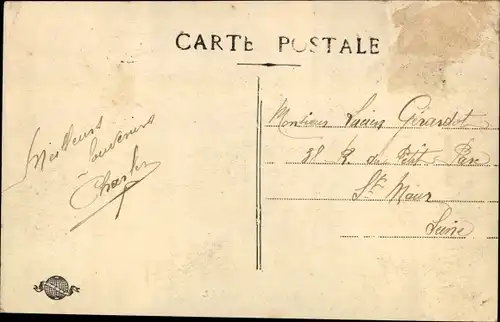 CARTE POSTALE
Meilleurs
Souvenirs
Charles
Monsieur Lucien Girardot
38 R du Petit Parc
St Maur
Seine